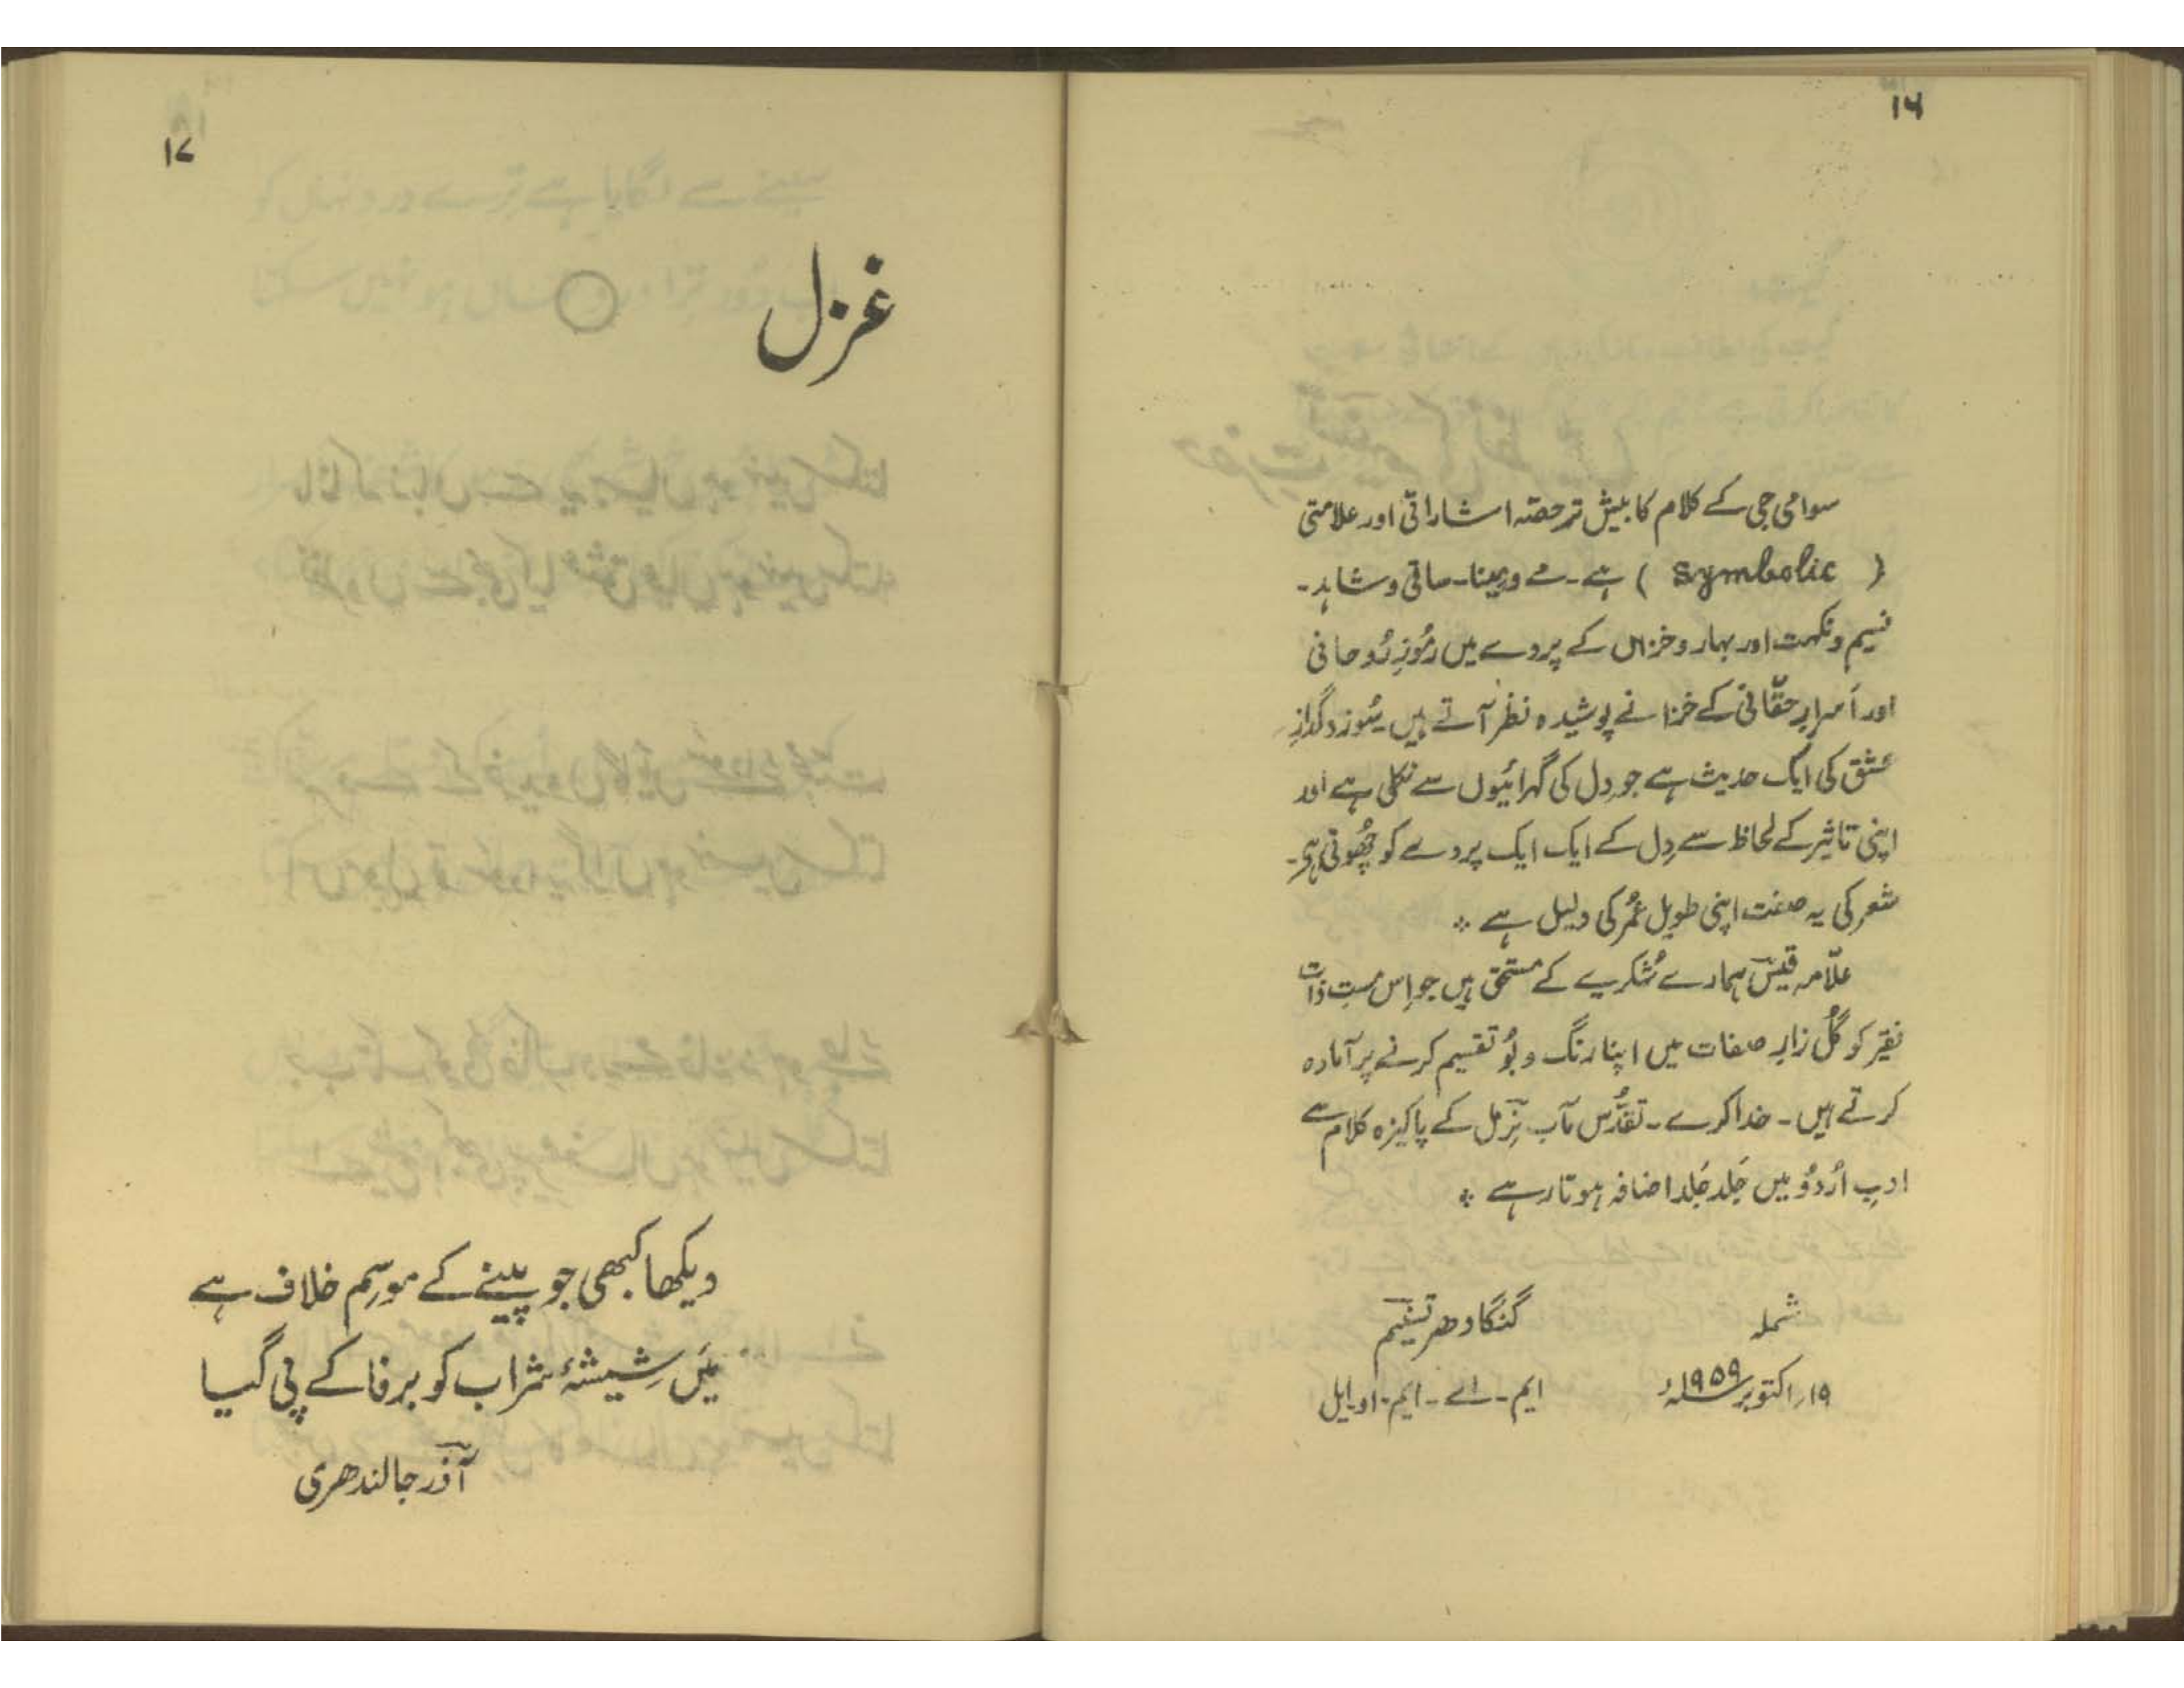 ۱۶
سوامی جی کے کلام کا بیش تر حصّہ اشاراتی اور علامتی
( Symbolic ) ہے۔ مے و مینا۔ ساقی و شاہد۔
نسیم و نکہت اور بہار و خزاں کے پردے میں رمُوزِ رُوحانی
اور اَسرارِ حقّانی کے خزانے پوشیدہ نظر آتے ہیں۔ سُوز و گدازِ
عشق کی ایک حدیث ہے جو دِل کی گہرائیوں سے نکلی ہے اور
اپنی تاثیر کے لحاظ سے دِل کے ایک ایک پردے کو چھُوتی ہے۔
شعر کی یہ صفت اپنی طویل عُمر کی دلیل ہے ٭
علّامہ قیسؔ ہمارے شُکریے کے مستحق ہیں جو اِس مستِ ذات
فقیر کو گُل زارِ صفات میں اپنا رنگ و بُو تقسیم کرنے پر آمادہ
کرتے ہیں۔ خدا کرے۔ تقدُّس مآب نِرملؔ کے پاکیزہ کلام سے
ادبِ اُردُو میں جَلد جَلد اضافہ ہوتا رہے ٭
شملہ
گنگا دھر تسنیمؔ
۱۹؍ اکتوبر ۱۹۵۹ء
ایم۔ اے۔ ایم۔ او۔ ایل
۱۷
غزل
دیکھا کبھی جو پینے کے موسِم خلاف ہے
میَں شِیشۂ شراب کو برفا کے پی گیا
آذرؔ جالندھری